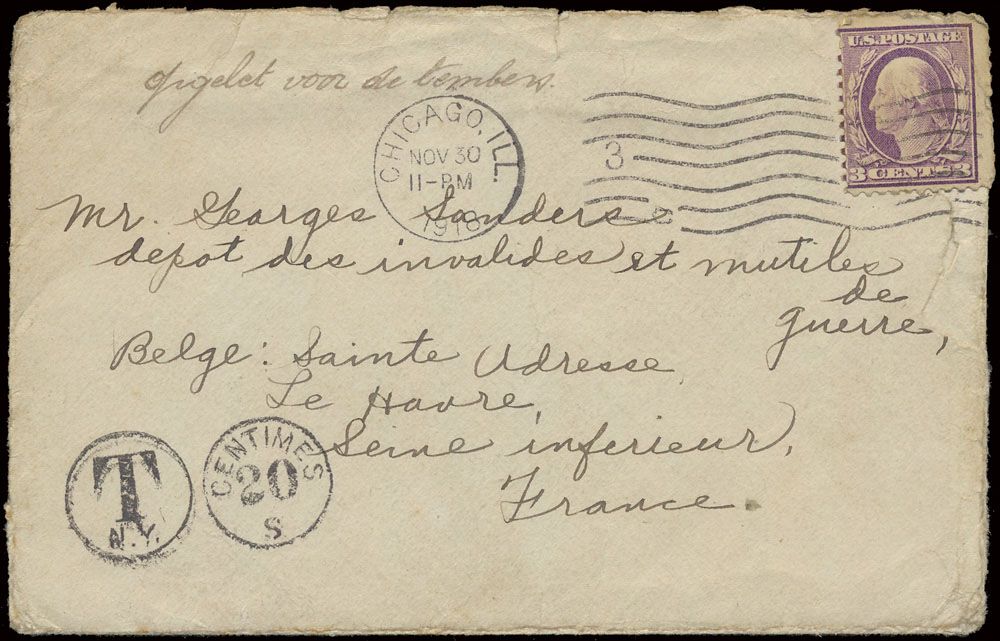 opgelet voor de tembers.
U.S. POSTAGE
3 CENTS 3
CHICAGO, ILL.
NOV 30
11-PM
1918
3
2
Mr. Georges Sanders
depot des invalides et mutiles
de
guerre,
Belge: Sainte Adresse,
Le Havre,
Seine inferieur,
France.
T
N.Y.
CENTIMES
20
S